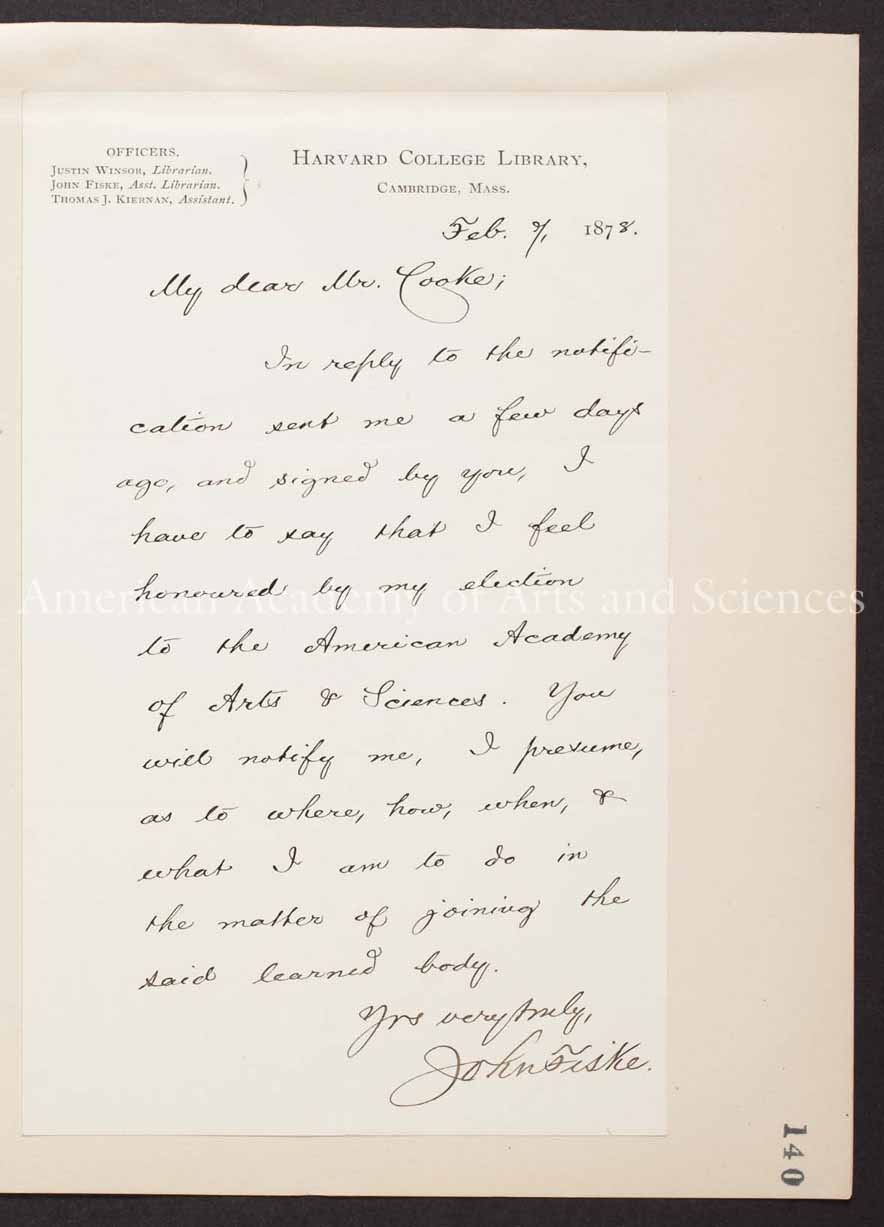 OFFICERS.
JUSTIN WINSOR, Librarian.
JOHN FISKE, Asst. Librarian.
THOMAS J. KIERNAN, Assistant.
HARVARD COLLEGE LIBRARY,
CAMBRIDGE, MASS.
Feb. 7, 1878.
My dear Mr. Cooke;
In reply to the notifi-
cation sent me a few days
ago, and signed by you, I
have to say that I feel
honoured by my election
American Academy of Arts and Sciences
to the American Academy
of Arts & Sciences. You
will notify me, I presume,
as to where, how, when, &
what I am to do in
the matter of joining the
said learned body.
Yrs very truly,
John Fiske.
140